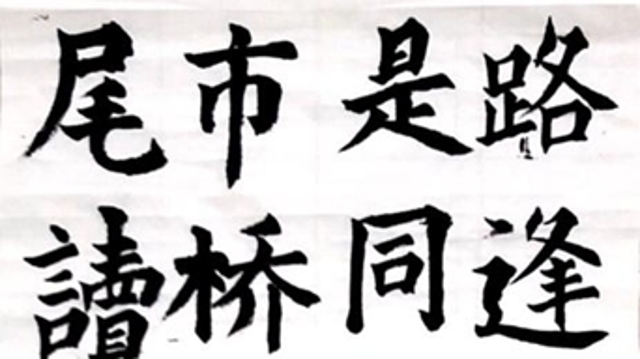 路逢
是同
市桥
尾讀